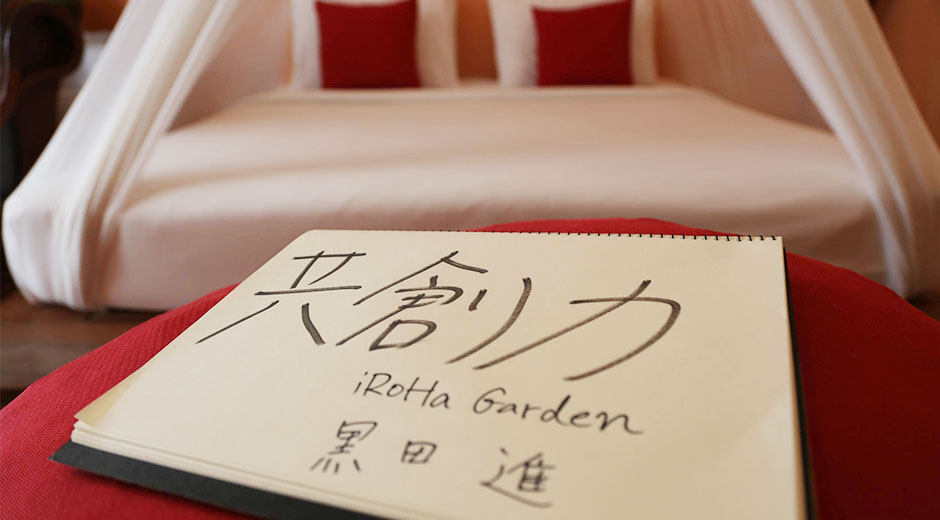 共創力
iRoHa Garden
黒田 進